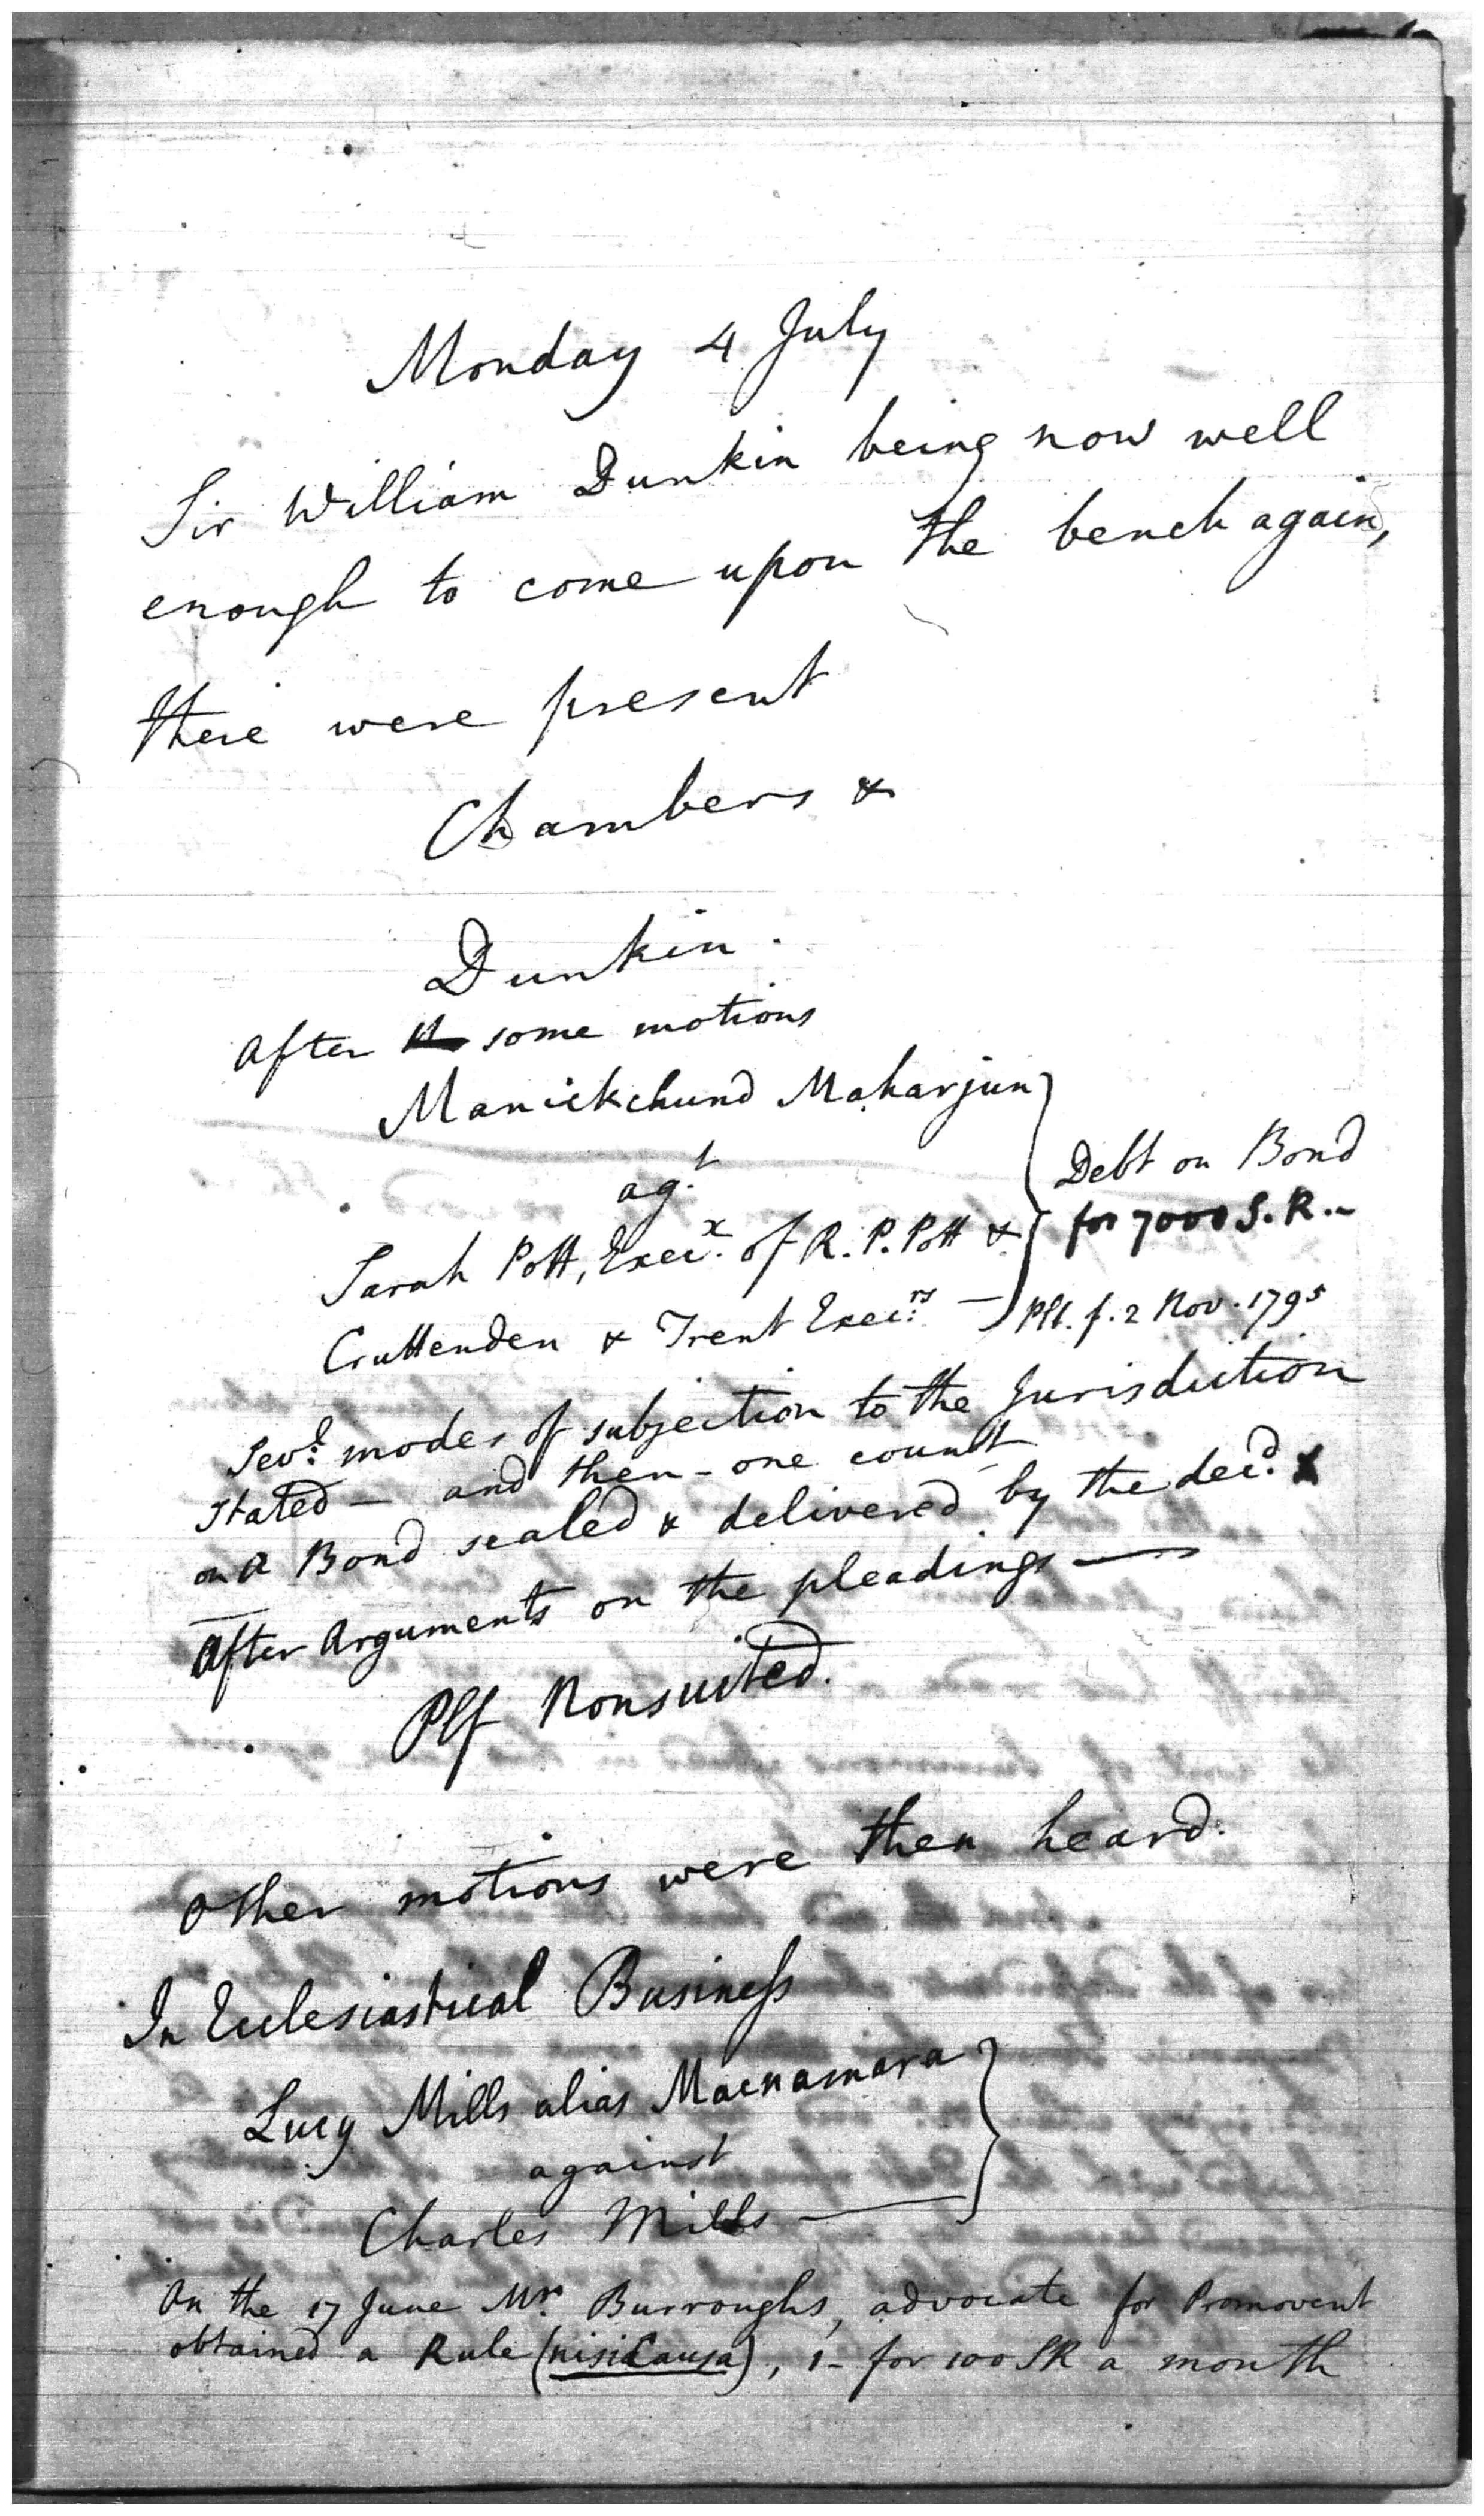 Monday 4 July
Sir William Dunkin being now well
enough to come upon the bench again,
there were present
Chambers &
Dunkin.
After some motions
Manickchund Maharjun
agt.
Sarah Pott, Execx. of R. P. Pott &
Cruttenden & Trent Execrs. —
Debt on Bond
for 7000 S. R. —
Plt. f. 2 Nov. 1795
Sevl. modes of subjection to the Jurisdiction
stated — and then – one count
on a Bond sealed & delivered by the decd.
After Arguments on the pleadings —
Plf Nonsuited.
Other motions were then heard.
In Ecclesiastical Business
Lucy Mills alias Macnamara
against
Charles Mills —
On the 17 June Mr. Burroughs, advocate for Promovent
obtained a Rule (nisi Causa), 1– for 100 SR a month